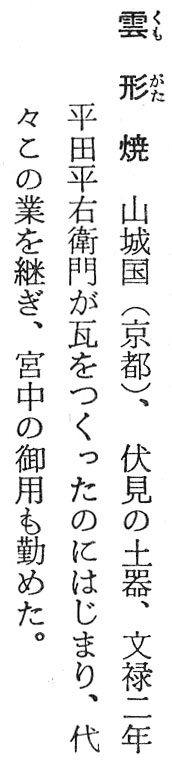 雲形焼　山城国（京都）、伏見の土器、文禄二年
平田平右衛門が瓦をつくったのにはじまり、代
々この業を継ぎ、宮中の御用も勤めた。